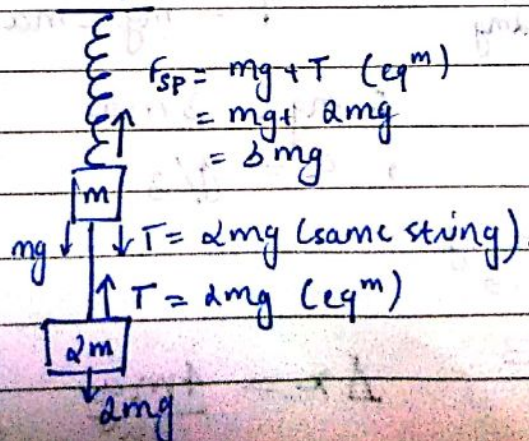 Fsp = mg + T (eqᵐ)
= mg + 2mg
= 3mg
m
mg
T = 2mg (same string)
T = 2mg (eqᵐ)
2m
2mg